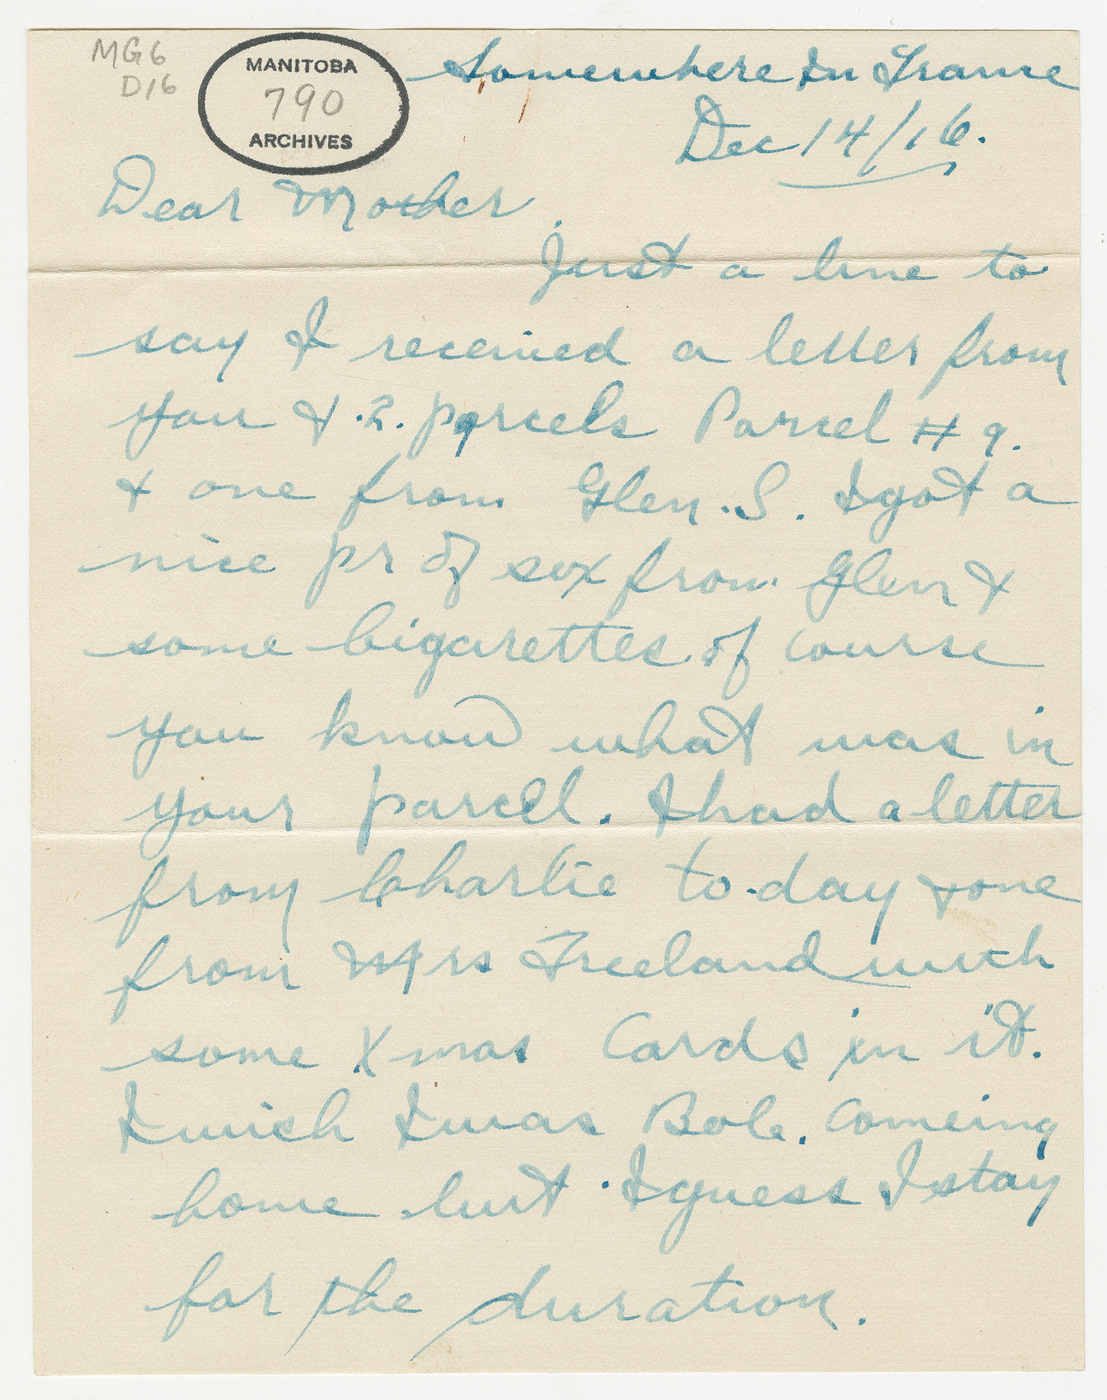 MG6
D16
MANITOBA
790
ARCHIVES
Somewhere In France
Dec 14/16.
Dear Mother,
Just a line to
say I received a letter from
you & .2. parcels Parcel # 9.
& one from Glen .S. I got a
nice pr of sox from Glen &
some Cigarettes of course
you know what was in
your parcel. I had a letter
from Charlie to-day & one
from Mrs Freeland with
some Xmas Cards in it.
I wish I was Bob. comeing
home but I guess I stay
for the duration.